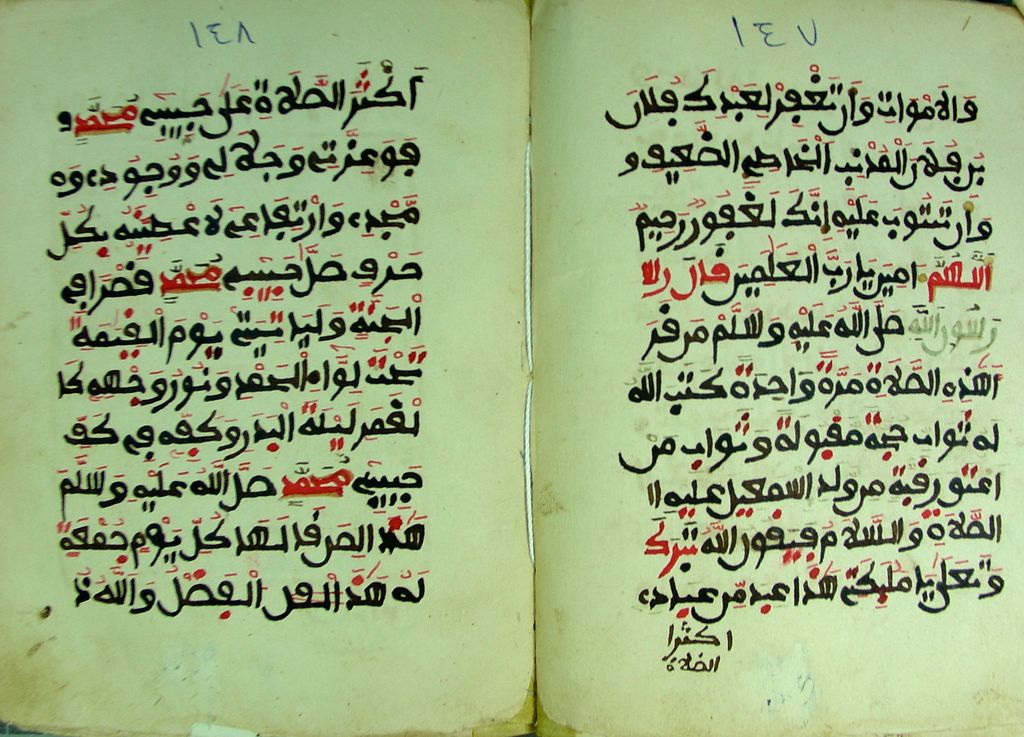 ١٤٧
والاموات وان تغفر لعبدك فلان
بن فلان المذنب الخاطئ الضعيف و
وان تتوب عليه انك لغفور رحيم
اللهم امين يا رب العلمين قال رسو
رسول الله صلى الله عليه وسلم من قر
أهذه الصلاة مرة واحدة كتب الله
له ثواب حجة مقبولة وثواب من
اعتق رقبة من ولد اسمعيل عليه ا
الصلاة والسلام فيقول الله تبرك
وتعلى يا مليكتي هذا عبد من عبادي
اكثرا
الصلاة
١٤٨
أكثر الصلاة على حبيبي محمد و
فوعزتي وجلالي ووجودي و
مجدي وارتفاعي لاعطينه بكل
حرف صلى حبيبي محمد قصرا في
الجنة وليا تيني يوم القيمة
تحت لواء الحمد ونور وجهه كا
لقمر ليلة البدر وكفه في كف
حبيبي محمد صلى الله عليه وسلم
هذا لمن قالها كل يوم جمعة
له هذا الفضل والله ذ